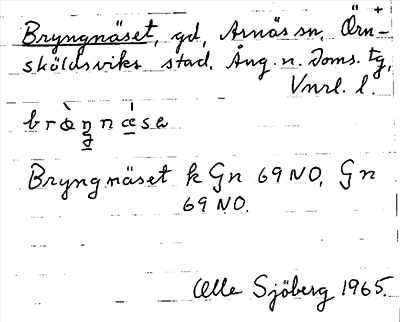 Bryngnäset, gd, Arnäs sn, Örn-
sköldsviks stad. Ång. n. doms. tg,
Vnrl. l.
Bryngnäset k Gn 69 NO, Gn
69 NO.
Olle Sjöberg 1965.